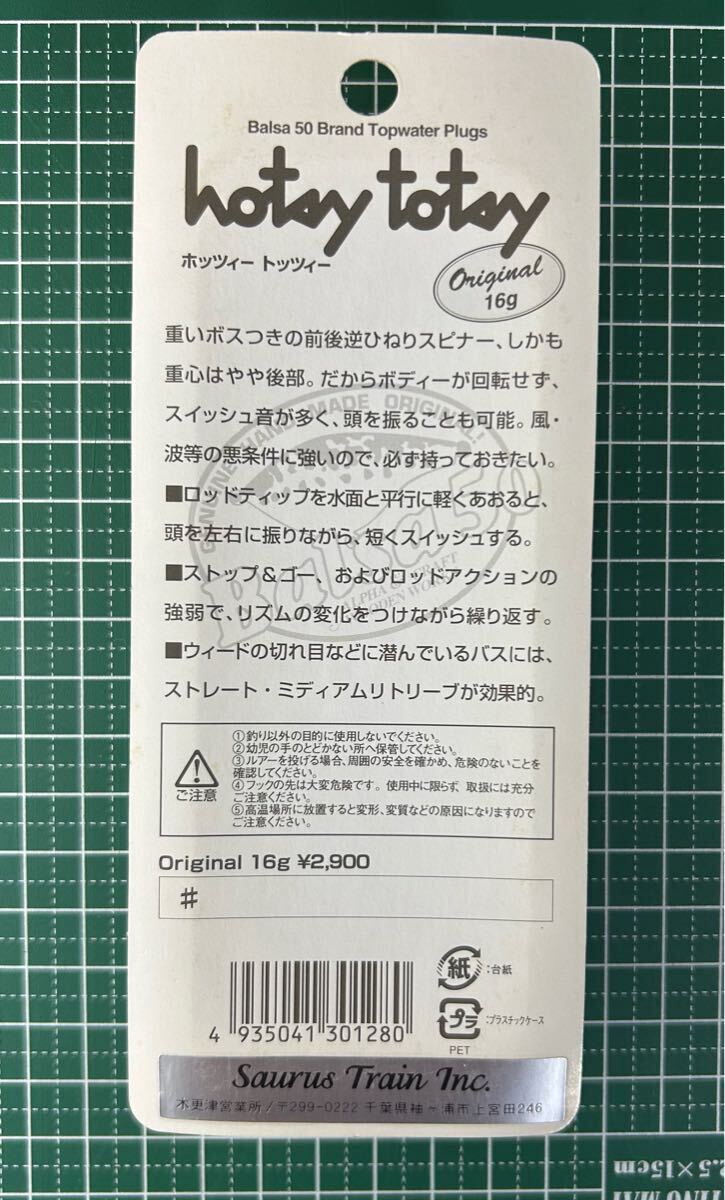 Balsa 50 Brand Topwater Plugs
hotsy totsy
ホッツィー トッツィー
Original
16g
重いボスつきの前後逆ひねりスピナー、しかも
重心はやや後部。だからボディーが回転せず、
スイッシュ音が多く、頭を振ることも可能。風・
波等の悪条件に強いので、必ず持っておきたい。
■ロッドティップを水面と平行に軽くあおると、
頭を左右に振りながら、短くスイッシュする。
■ストップ＆ゴー、およびロッドアクションの
強弱で、リズムの変化をつけながら繰り返す。
■ウィードの切れ目などに潜んでいるバスには、
ストレート・ミディアムリトリーブが効果的。
GENUINE HAND MADE ORIGINAL!
Balsa50
ALPHA & CRAFT
WOODEN WORKS
ご注意
①釣り以外の目的に使用しないでください。
②幼児の手のとどかない所へ保管してください。
③ルアーを投げる場合、周囲の安全を確かめ、危険のないことを
確認してください。
④フックの先は大変危険です。使用中に限らず、取扱には充分
ご注意ください。
⑤高温場所に放置すると変形、変質などの原因になりますので
ご注意ください。
Original 16g ¥2,900
#
4 935041 301280
紙 :台紙
プラ :プラスチックケース
PET
Saurus Train Inc.
木更津営業所/〒299-0222 千葉県袖ヶ浦市上宮田246
2.5×15cm